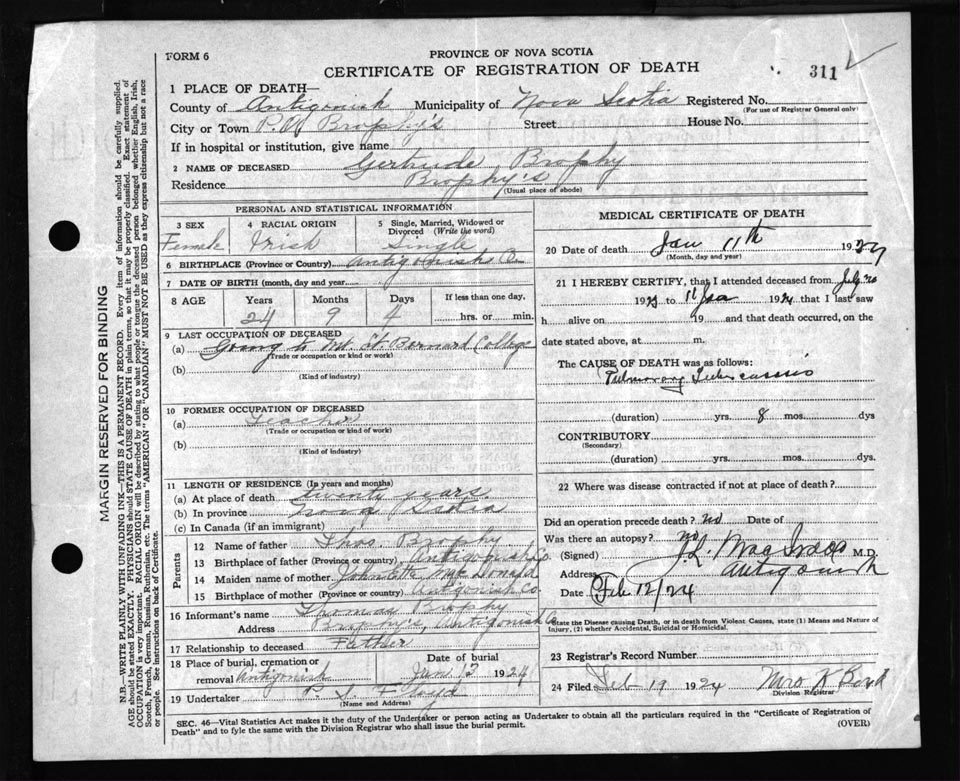 FORM 6
PROVINCE OF NOVA SCOTIA
CERTIFICATE OF REGISTRATION OF DEATH
311
1 PLACE OF DEATH—
County of Antigonish Municipality of Nova Scotia Registered No.
(For use of Registrar General only)
City or Town P.O Brophy's Street House No.
If in hospital or institution, give name
2 NAME OF DECEASED Gertrude Brophy
Residence Brophy's
(Usual place of abode)
PERSONAL AND STATISTICAL INFORMATION
3 SEX Female
4 RACIAL ORIGIN Irish
5 Single, Married, Widowed or Divorced (Write the word) Single
6 BIRTHPLACE (Province or Country) Antigonish Co.
7 DATE OF BIRTH (month, day and year)
8 AGE Years Months Days If less than one day,
24 9 4 hrs. or min.
9 LAST OCCUPATION OF DECEASED
(a) Going to Mt. St Bernard College
(Trade or occupation or kind of work)
(b)
(Kind of industry)
10 FORMER OCCUPATION OF DECEASED
(a) Teacher
(Trade or occupation or kind of work)
(b)
(Kind of industry)
11 LENGTH OF RESIDENCE (In years and months)
(a) At place of death twenty years.
(b) In province Nova Scotia
(c) In Canada (if an immigrant)
Parents
12 Name of father Thos. Brophy
13 Birthplace of father (Province or country) Antigonish Co.
14 Maiden name of mother McDonald
15 Birthplace of mother (Province or country) Antigonish Co.
16 Informant's name Thomas Brophy
Address Brophy's, Antigonish Co
17 Relationship to deceased Father
18 Place of burial, cremation or removal Antigonish
Date of burial Jan 13 1924
19 Undertaker P. S. Floyd
(Name and Address)
MEDICAL CERTIFICATE OF DEATH
20 Date of death Jan 11th 1924
(Month, day and year)
21 I HEREBY CERTIFY, that I attended deceased from July 20
1923 to 11 Jan 1924 that I last saw
h alive on 19 and that death occurred, on the
date stated above, at m.
The CAUSE OF DEATH was as follows:
Pulmonary Tuberculosis
(duration) yrs. 8 mos. dys
CONTRIBUTORY
(Secondary)
(duration) yrs. mos. dys.
22 Where was disease contracted if not at place of death?
Did an operation precede death? no Date of
Was there an autopsy? no
(Signed) M.D.
Address Antigonish
Date Feb 12/24
State the Disease causing Death, or in death from Violent Causes, state (1) Means and Nature of
Injury, (2) whether Accidental, Suicidal or Homicidal.
23 Registrar's Record Number
24 Filed Feb 19 1924 Mrs K Boyd
Division Registrar
SEC. 46—Vital Statistics Act makes it the duty of the Undertaker or person acting as Undertaker to obtain all the particulars required in the "Certificate of Registration of
Death" and to fyle the same with the Division Registrar who shall issue the burial permit.
(OVER)
MARGIN RESERVED FOR BINDING
N.B.—WRITE PLAINLY WITH UNFADING INK—THIS IS A PERMANENT RECORD. Every item of information should be carefully supplied.
AGE should be stated EXACTLY. PHYSICIANS should STATE CAUSE OF DEATH in plain terms, so that it may be properly classified. Exact statement of
OCCUPATION is very important. RACIAL ORIGIN will be described by stating to what people or tongue the deceased person belonged whether English, Irish,
Scotch, French, German, Russian, Ruthenian, etc. The terms "AMERICAN" OR "CANADIAN" MUST NOT BE USED as they express citizenship but not a race
or people. See instructions on back of Certificate.